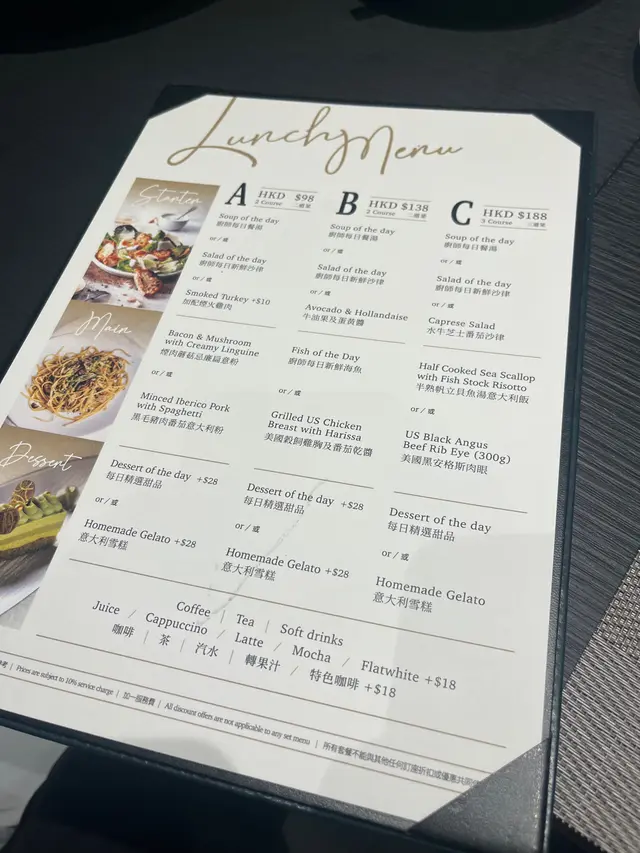 Lunch Menu
Starter
Main
Dessert
A HKD $98
2 Course 二道菜
Soup of the day
廚師每日餐湯
or / 或
Salad of the day
廚師每日新鮮沙律
or / 或
Smoked Turkey +$10
加配煙火雞肉
Bacon & Mushroom
with Creamy Linguine
煙肉蘑菇忌廉扁意粉
or / 或
Minced Iberico Pork
with Spaghetti
黑毛豬肉番茄意大利粉
Dessert of the day +$28
每日精選甜品
or / 或
Homemade Gelato +$28
意大利雪糕
B HKD $138
2 Course 二道菜
Soup of the day
廚師每日餐湯
or / 或
Salad of the day
廚師每日新鮮沙律
or / 或
Avocado & Hollandaise
牛油果及蛋黃醬
Fish of the Day
廚師每日新鮮海魚
or / 或
Grilled US Chicken
Breast with Harissa
美國穀飼雞胸及番茄乾醬
Dessert of the day +$28
每日精選甜品
or / 或
Homemade Gelato +$28
意大利雪糕
C HKD $188
3 Course 三道菜
Soup of the day
廚師每日餐湯
or / 或
Salad of the day
廚師每日新鮮沙律
or / 或
Caprese Salad
水牛芝士番茄沙律
Half Cooked Sea Scallop
with Fish Stock Risotto
半熟帆立貝魚湯意大利飯
or / 或
US Black Angus
Beef Rib Eye (300g)
美國黑安格斯肉眼
Dessert of the day
每日精選甜品
or / 或
Homemade Gelato
意大利雪糕
Coffee | Tea | Soft drinks
Juice / Cappuccino / Latte / Mocha / Flatwhite +$18
咖啡 | 茶 | 汽水 | 轉果汁 / 特色咖啡 +$18
Prices are subject to 10% service charge | 加一服務費 | All discount offers are not applicable to any set menu | 所有套餐不能與其他任何訂座折扣或優惠共同